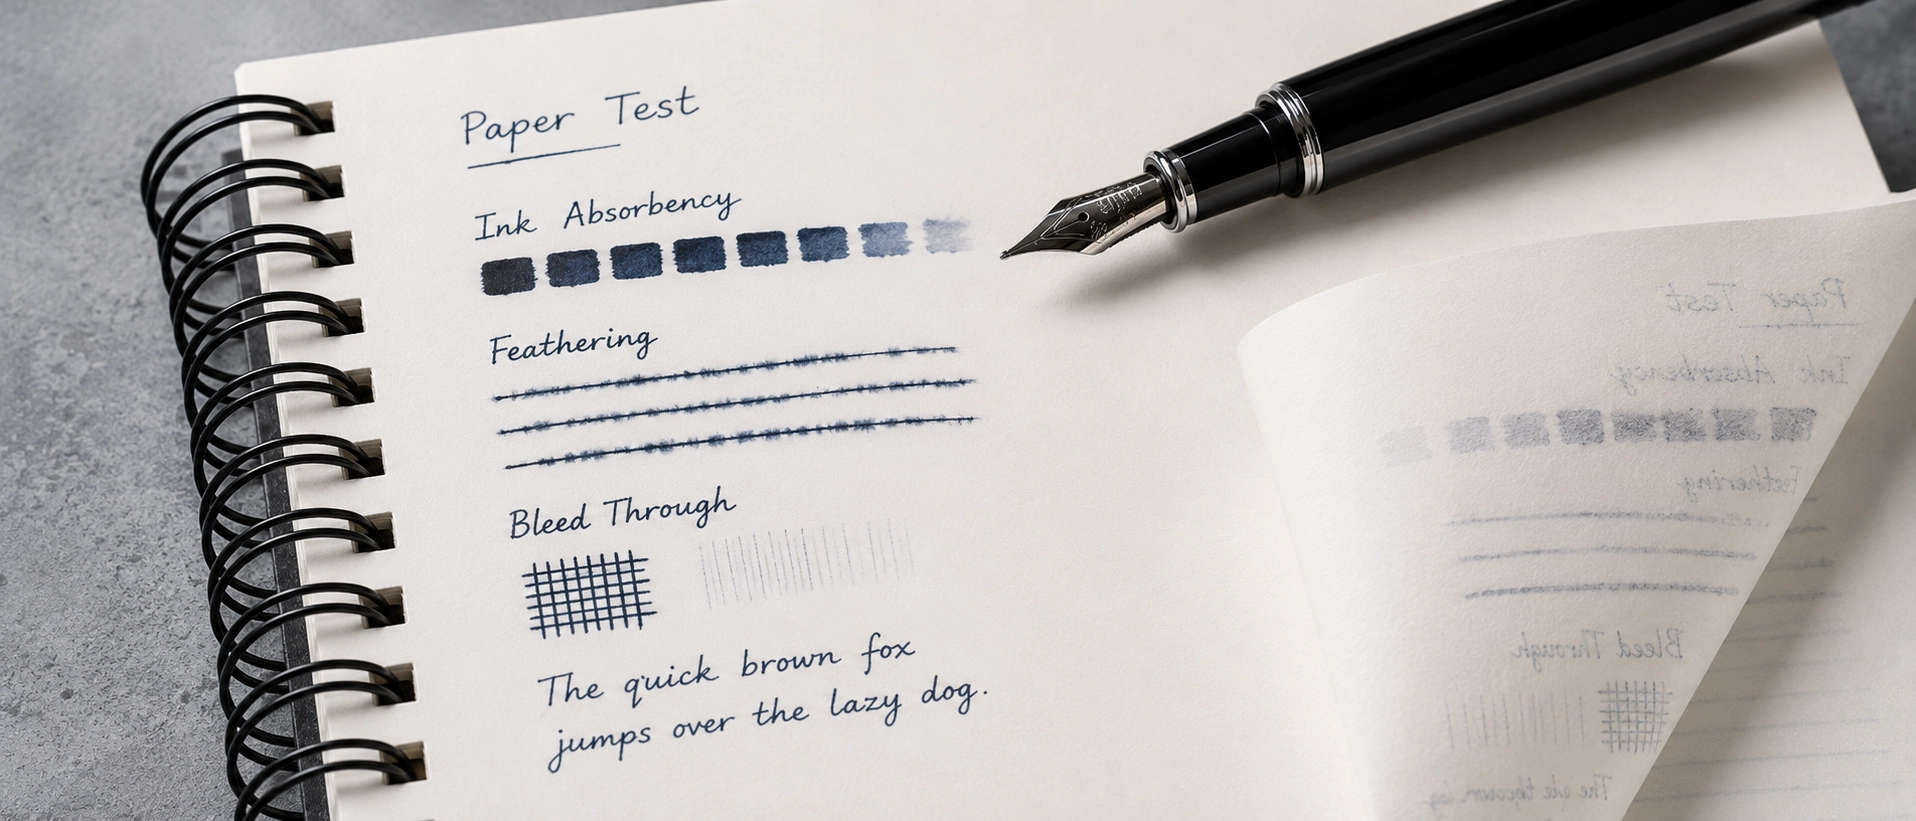 Paper Test
Ink Absorbency
Feathering
Bleed Through
The quick brown fox
jumps over the lazy dog.
Paper Test
Ink Absorbency
Feathering
Bleed Through
The